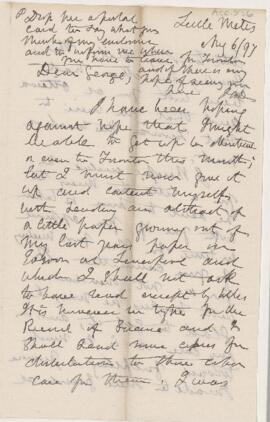 P Drop me a postal
card to say what you
think of my enclosure
and to inform me when
you have to leave for Toronto
and if there is any
hope of seeing you
here
Little Metis
Aug 6/97
Dear George,
I have been hoping
against hope that I might
be able to get up to Montreal
or even to Toronto this month;
but I must now give it
up and content myself
with sending an abstract of
a little paper growing out of
my last years paper on
Eozoon at Liverpool and
which I shall not ask
to have read except by title
It is however in type for the
Record of Science and I
shall send some copies for
distribution to those who
care for them. I was